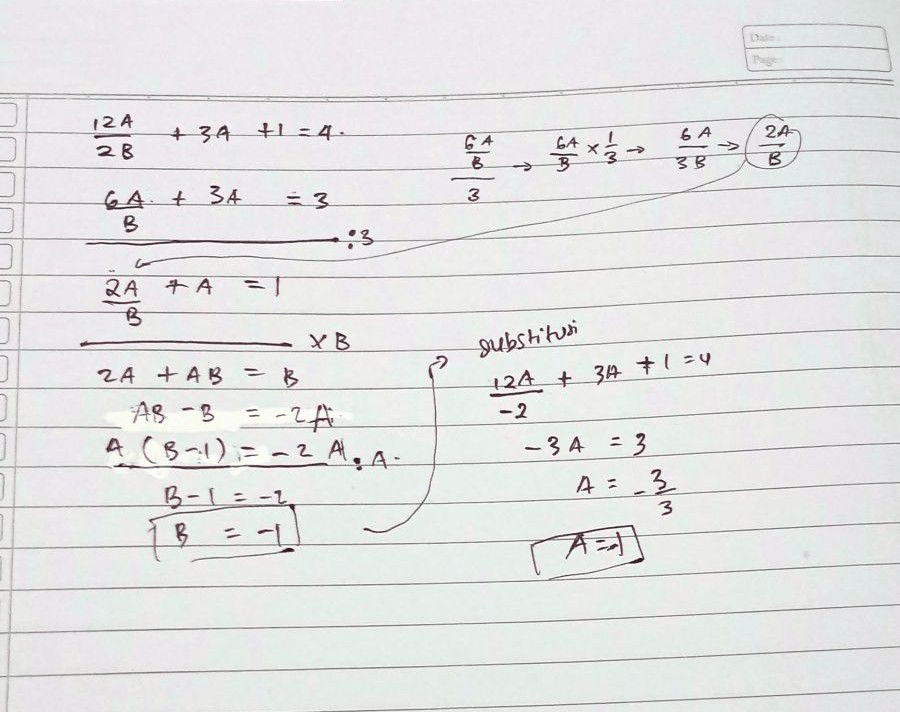 Date:
Page:
12A/2B + 3A + 1 = 4.
6A/B + 3A = 3
:3
2A/B + A = 1
× B
2A + AB = B
AB - B = -2A
A (B-1) = -2 A : A.
B - 1 = -2
B = -1
6A/B / 3 → 6A/B × 1/3 → 6A/3B → 2A/B
substitusi
12A/-2 + 3A + 1 = 4
-3A = 3
A = -3/3
A = -1